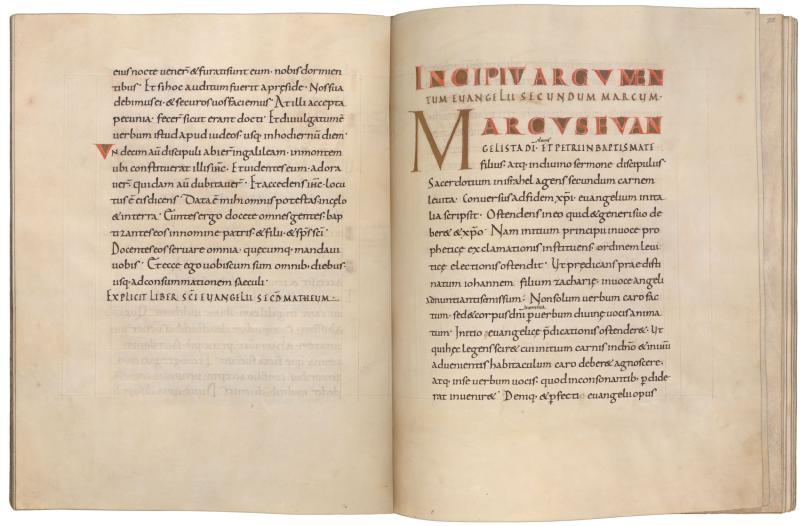 eius nocte vener̄ & furati sunt eum · nobis dormien
tibus · Et si hoc auditum fuerit apreside · Nos sua
debimus ei · & securos uos faciemus · At illi accepta
pecunia · fecer̄ sicut erant docti · Et diuulgatum ē
uerbum istud apud iudeos · usq; in hodiernū diem ·
Undecim aū discipuli abier̄ in galileam · in montem
ubi constituerat illis ihc̄ · Et uidentes eum · adora
uer̄ · quidam aū dubitauer̄ · Et accedens ihc̄ · locu
tus ē eis dicens · Data ē mihi omnis potestas in cęlo
& in terra · Euntes ergo docete omnes gentes · bap
tizantes eos in nomine patris · & filii · & sp̄s sc̄i ·
Docentes eos seruare omnia · quęcumq; mandaui
uobis · Et ecce ego uobiscum sum omnib; diebus ·
usq; ad consummationem saeculi ·
EXPLICIT LIBER SC̄I EVANGELII SECD̄ MATHEUM ·
INCIPIT ARGVMEN
TUM EVANGELII SECUNDUM MARCUM ·
MARCVS EVAN
GELISTA DI · ET PETRI IN BAPTISMATE
filius · atq; in diuino sermone discipulus ·
Sacerdotium in israhel agens secundum carnem
leuita · Conuersus ad fidem xp̄i · euangelium in ita
lia scripsit · Ostendens in eo quid & generi suo de
ber& & xp̄o · Nam initium principii in uoce pro
pheticę exclamationis instituens · ordinem leui
ticę electionis ostendit · Ut predicans praedesti
natum iohannem · filium zacharię · in uoce angeli
adnuntiantis emissum · Non solum uerbum caro fac
tum · sed & corpus dn̄i · per uerbum diuinę uocis anima
tum · Initio euangelicę p̄dicationis ostender& · Ut
qui hęc legens scir& cui initium carnis in dn̄o &
aduenientis habitaculum caro deber& agnoscere ·
atq; in se uerbum uocis · quod in consonantib; p̄dide
rat inuenir& · Deniq; & p̄fecti euangelii opus